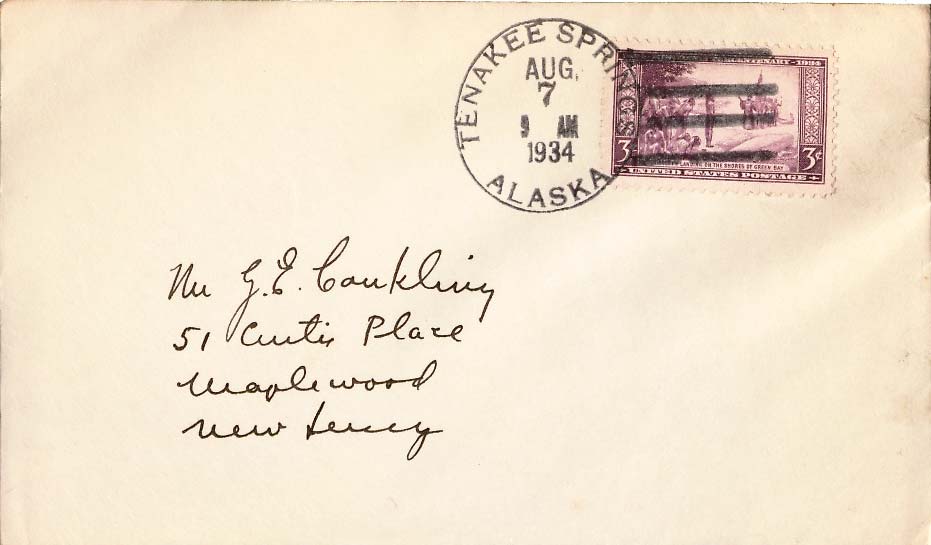 TENAKEE SPRIN
AUG.
7
9 AM
1934
ALASKA
CENTENARY-1934
3¢ 3¢
LANDING ON THE SHORES OF GREEN BAY
UNITED STATES POSTAGE
Mr G.E. Conkling
51 Curtis Place
Maplewood
New Jersey